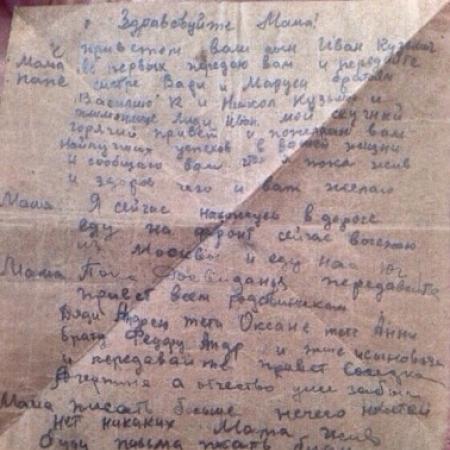 Здравсвуйте Мама!
С приветом вам сын Иван Кузьмич
Мама во первых передаю вам и передайте
папе сестре Вали и Маруси братьям
Василию К и Никол Кузьмич и
Лиды Иван мои скучний
горячий привет и пожелаю вам
найлучших успехов в вашей жизни
и сообщаю вам что я пока жив
и здоров чего и вам желаю
Мама Я сейчас нахожусь в дороге
еду на фронт сейчас выезжаю
из Москвы и еду на Юг
Мама Пока Досвиданья передавайте
привет всем родственикам
Дяди Андрею тети Оксане тете Анни
брату Федору Андр и
и передавайте привет соседка
а отчество уже забыл
Мама писать больше нечего новостей
нет никаких Мама жив
буду письма писать буду